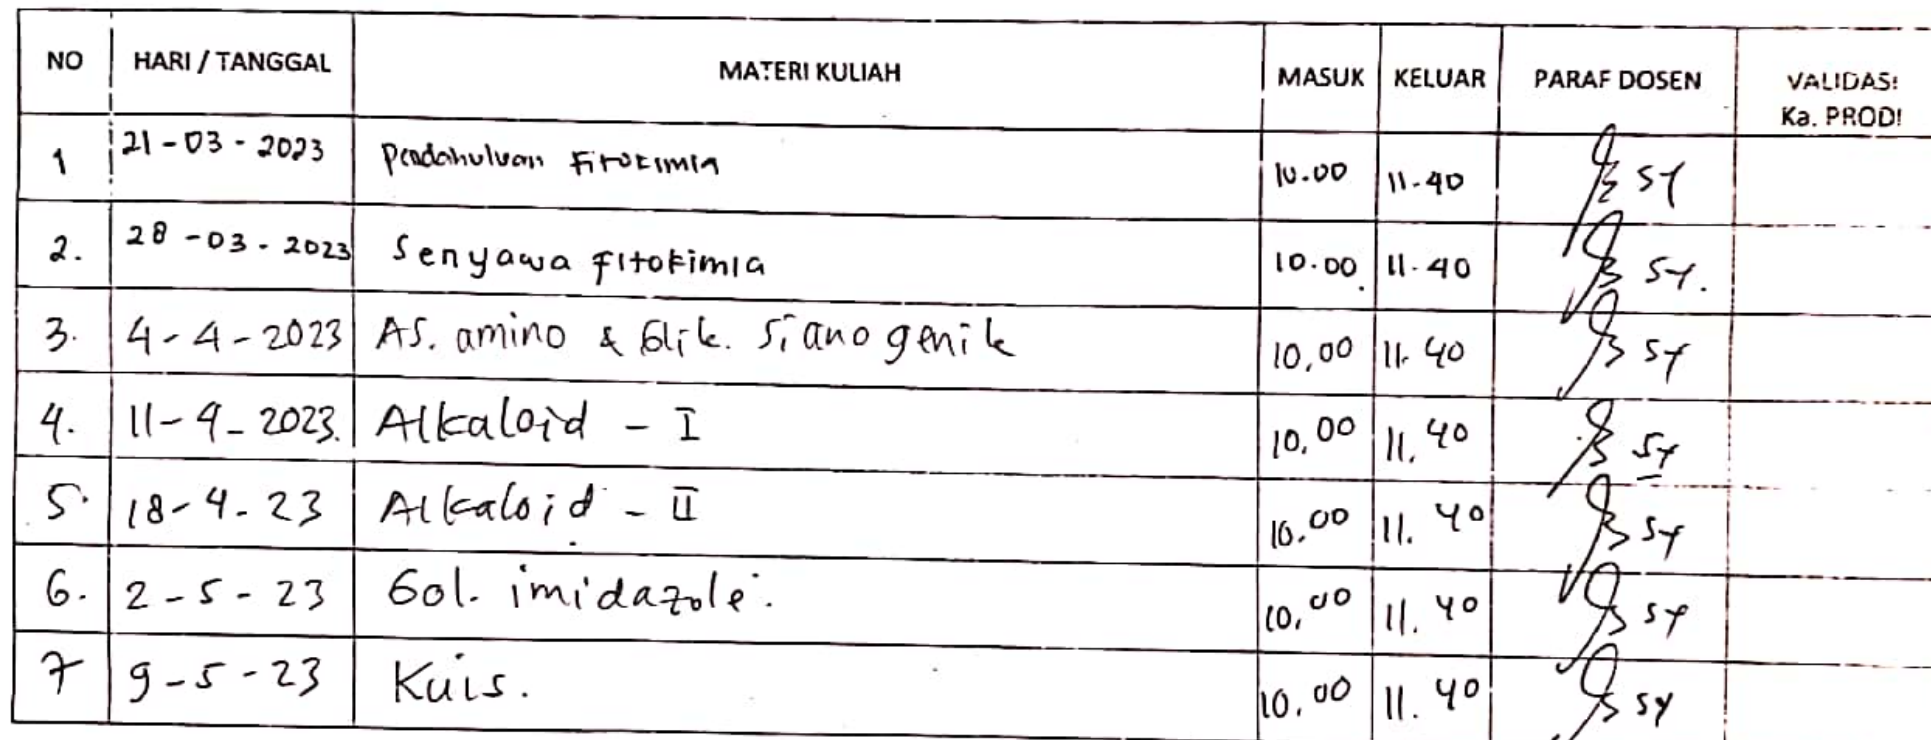 NO HARI / TANGGAL MATERI KULIAH MASUK KELUAR PARAF DOSEN VALIDASI Ka. PRODI
1 21-03-2023 Pendahuluan Fitokimia 10.00 11.40 SY
2. 28-03-2023 Senyawa Fitokimia 10.00 11.40 SY.
3. 4-4-2023 AS. amino & Glik. Sianogenik 10,00 11.40 SY
4. 11-4-2023. Alkaloid - I 10,00 11.40 SY
5. 18-4-23 Alkaloid - II 10.00 11.40 SY
6. 2-5-23 Gol. imidazole. 10,00 11.40 SY
7 9-5-23 Kuis. 10.00 11.40 SY